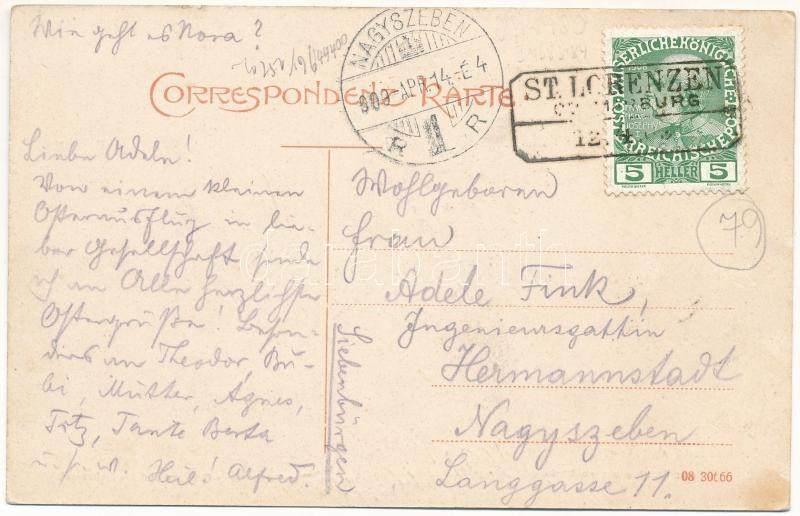 Wie geht es Nora?
CORRESPONDENZ-KARTE
NAGYSZEBEN
909 APR. 14.-É 4
R R
1
ST. LORENZEN
12.4.
5 HELLER 5
79
Liebe Adele!
Von einem kleinen
Osterausflug in lie-
ber Gesellschaft sende
ich an Alle herzlichste
Ostergrüße! Beson-
ders an Theodor, Bu-
bi, Mutter, Agnes,
Fritz, Tante Berta
u. s. w. Heil! Alfred.
Wohlgeboren
Frau
Adele Fink,
Ingenieursgattin
Hermannstadt
Nagyszeben
Langgasse 11.
Siebenbürgen
08 30666
darabanth